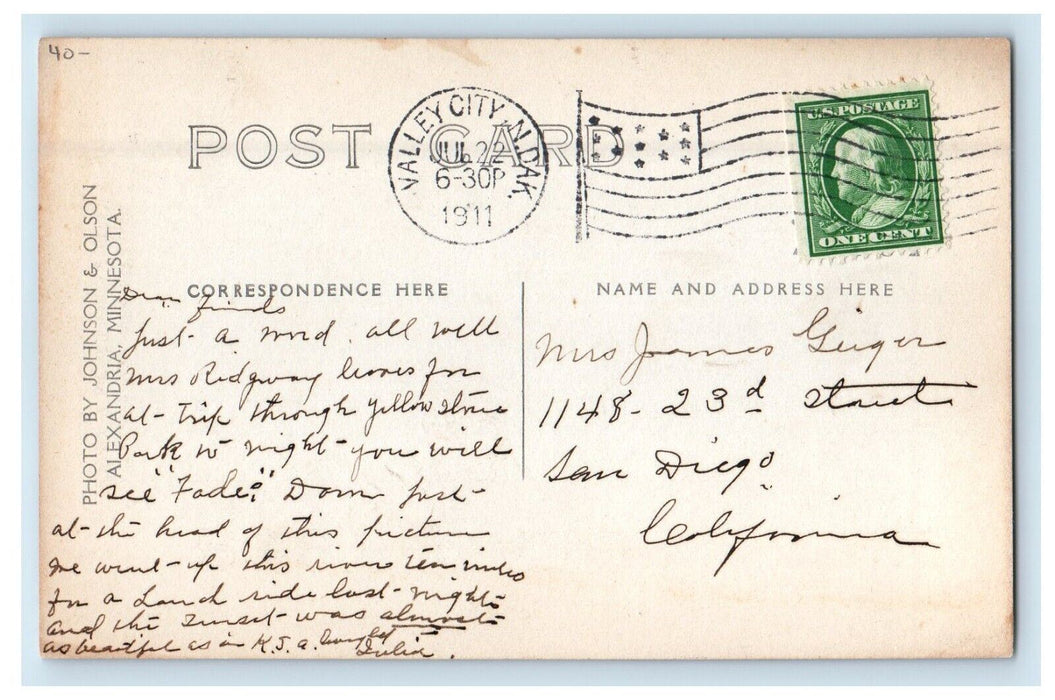 40-
POST CARD
VALLEY CITY, N. DAK.
JUL 22
6-30P
1911
U.S. POSTAGE
ONE CENT
PHOTO BY JOHNSON & OLSON
ALEXANDRIA, MINNESOTA.
CORRESPONDENCE HERE
NAME AND ADDRESS HERE
Dear Friends
Just a word. all well
Mrs Ridgway leaves for
a trip through Yellowstone
Park to night - you will
see "Fade" Dam just
at the head of this picture
we went up this river ten miles
for a Launch ride last night
and the sunset was almost
as beautiful as in
Julia.
Mrs James Geiger
1148 - 23d Street
San Diego
California